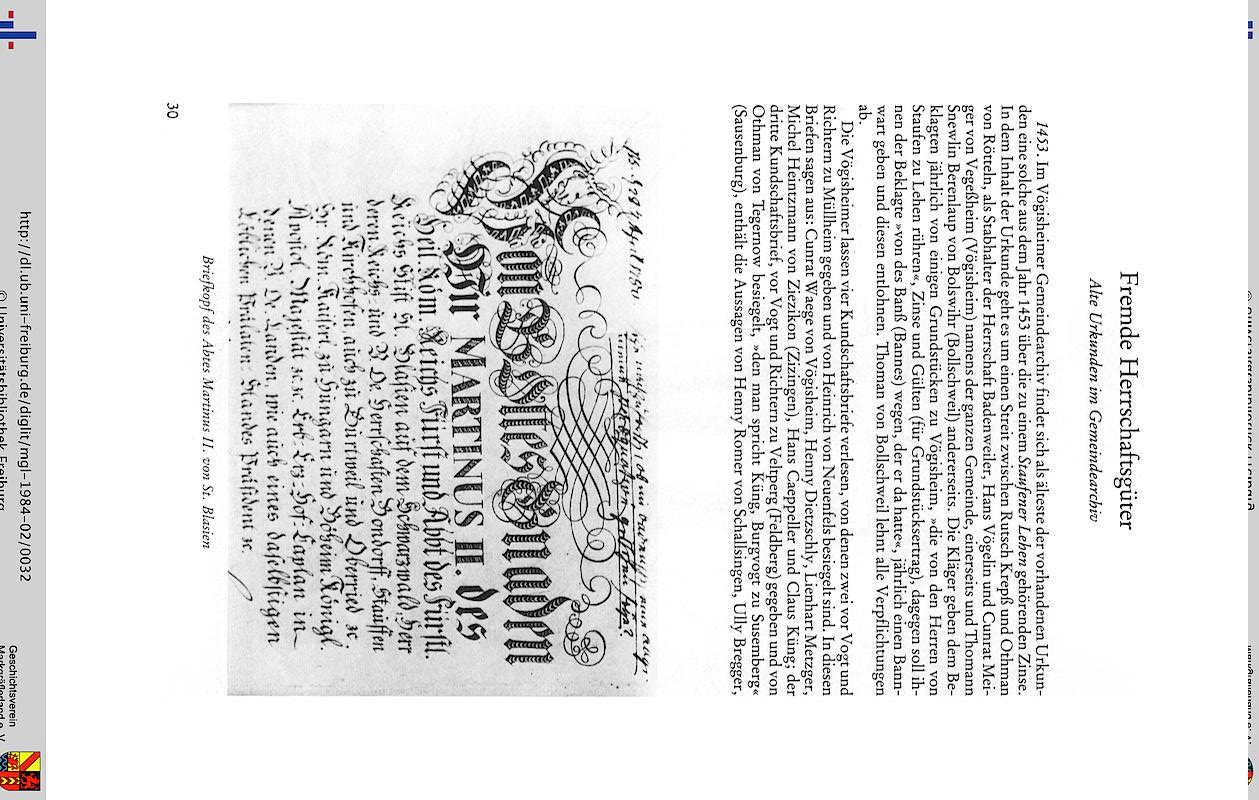 Fremde Herrschaftsgüter
Alte Urkunden im Gemeindearchiv
1453. Im Vögisheimer Gemeindearchiv findet sich als älteste der vorhandenen Urkun-
den eine solche aus dem Jahr 1453 über die zu einem Staufener Lehen gehörenden Zinse.
In dem Inhalt der Urkunde geht es um einen Streit zwischen Kutsch Krepß und Othman
von Rötteln, als Stabhalter der Herrschaft Badenweiler, Hans Vögelin und Cunrat Mei-
ger von Vegeßheim (Vögisheim) namens der ganzen Gemeinde, einerseits und Thomann
Snewlin Berenlaup von Bolswihr (Bollschweil) andererseits. Die Kläger geben dem Be-
klagten jährlich von einigen Grundstücken zu Vögisheim, »die von den Herren von
Staufen zu Lehen rühren«, Zinse und Gülten (für Grundstücksertrag), dagegen soll ih-
nen der Beklagte »von des Banß (Bannes) wegen, der er da hatte«, jährlich einen Bann-
wart geben und diesen entlohnen. Thoman von Bollschweil lehnt alle Verpflichtungen
ab.
Die Vögisheimer lassen vier Kundschaftsbriefe verlesen, von denen zwei vor Vogt und
Richtern zu Müllheim gegeben und von Heinrich von Neuenfels besiegelt sind. In diesen
Briefen sagen aus: Cunrat Waege von Vögisheim, Henny Dietzschly, Lienhart Metzger,
Michel Heintzmann von Ziezikon (Zizingen), Hans Caeppeller und Claus Küng; der
dritte Kundschaftsbrief, vor Vogt und Richtern zu Veltperg (Feldberg) gegeben und von
Othman von Tegernow besiegelt, »den man spricht Küng, Burgvogt zu Susemberg«
(Sausenburg), enthält die Aussagen von Henny Romer von Schallsingen, Ully Bregger,
Von Gottes Gnaden
Wir MARTINUS II. des
Heil. Röm. Reichs Fürst und Abbt des Fürstl.
Reichs Stift St. Blasien auf dem Schwarzwald, Herr
deren Reichs- und V. Oe. Herrschaften Bondorff, Stauffen
und Kirchhofen, auch zu Gurtweil und Oberried ꝛc
Ihr. Röm. Kaiserl. zu Hungarn und Böheim Königl.
Apostol. Majestät ꝛc. ꝛc. Erb-Erz-Hof-Caplan in
denen V. Oe. Landen, wie auch eines daselbstigen
Löblichen Prälaten-Standes Präsident ꝛc.
Briefkopf des Abtes Martinus II. von St. Blasien
30
http://dl.ub.uni-freiburg.de/diglit/mgl-1984-02/0032
© Universitätsbibliothek Freiburg
Geschichtsverein
Markgräflerland e. V.